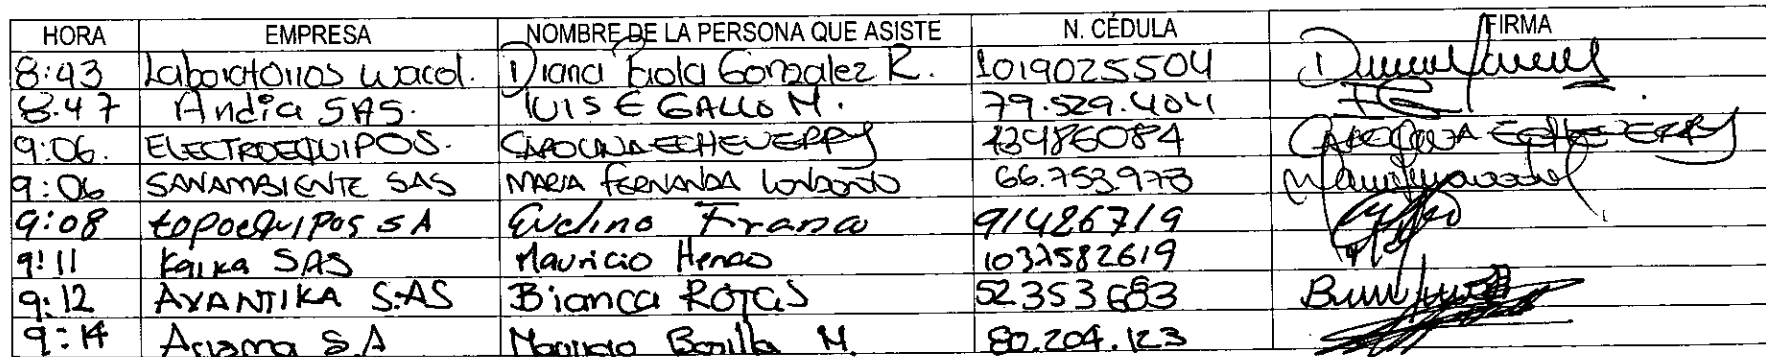 HORA EMPRESA NOMBRE DE LA PERSONA QUE ASISTE N. CÉDULA FIRMA
8:43 Laboratorios Wacol. Diana Paola Gonzalez R. 1019025504
8:47 Andia SAS. LUIS E GALLO M. 79.529.404
9:06. ELECTROEQUIPOS. CAROLINA ECHEVERRY 43486084 CAROLINA ECHEVERRY
9:06 SANAMBIENTE SAS MARIA FERNANDA LONDOÑO 66.753.973
9:08 topoequipos SA Evelino Franco 91426719
9:11 Kaika SAS Mauricio Henao 1037582619
9:12 AVANTIKA S.AS Bianca ROJAS 52353683
9:14 S.A Mauricio Bonilla M. 80.204.123